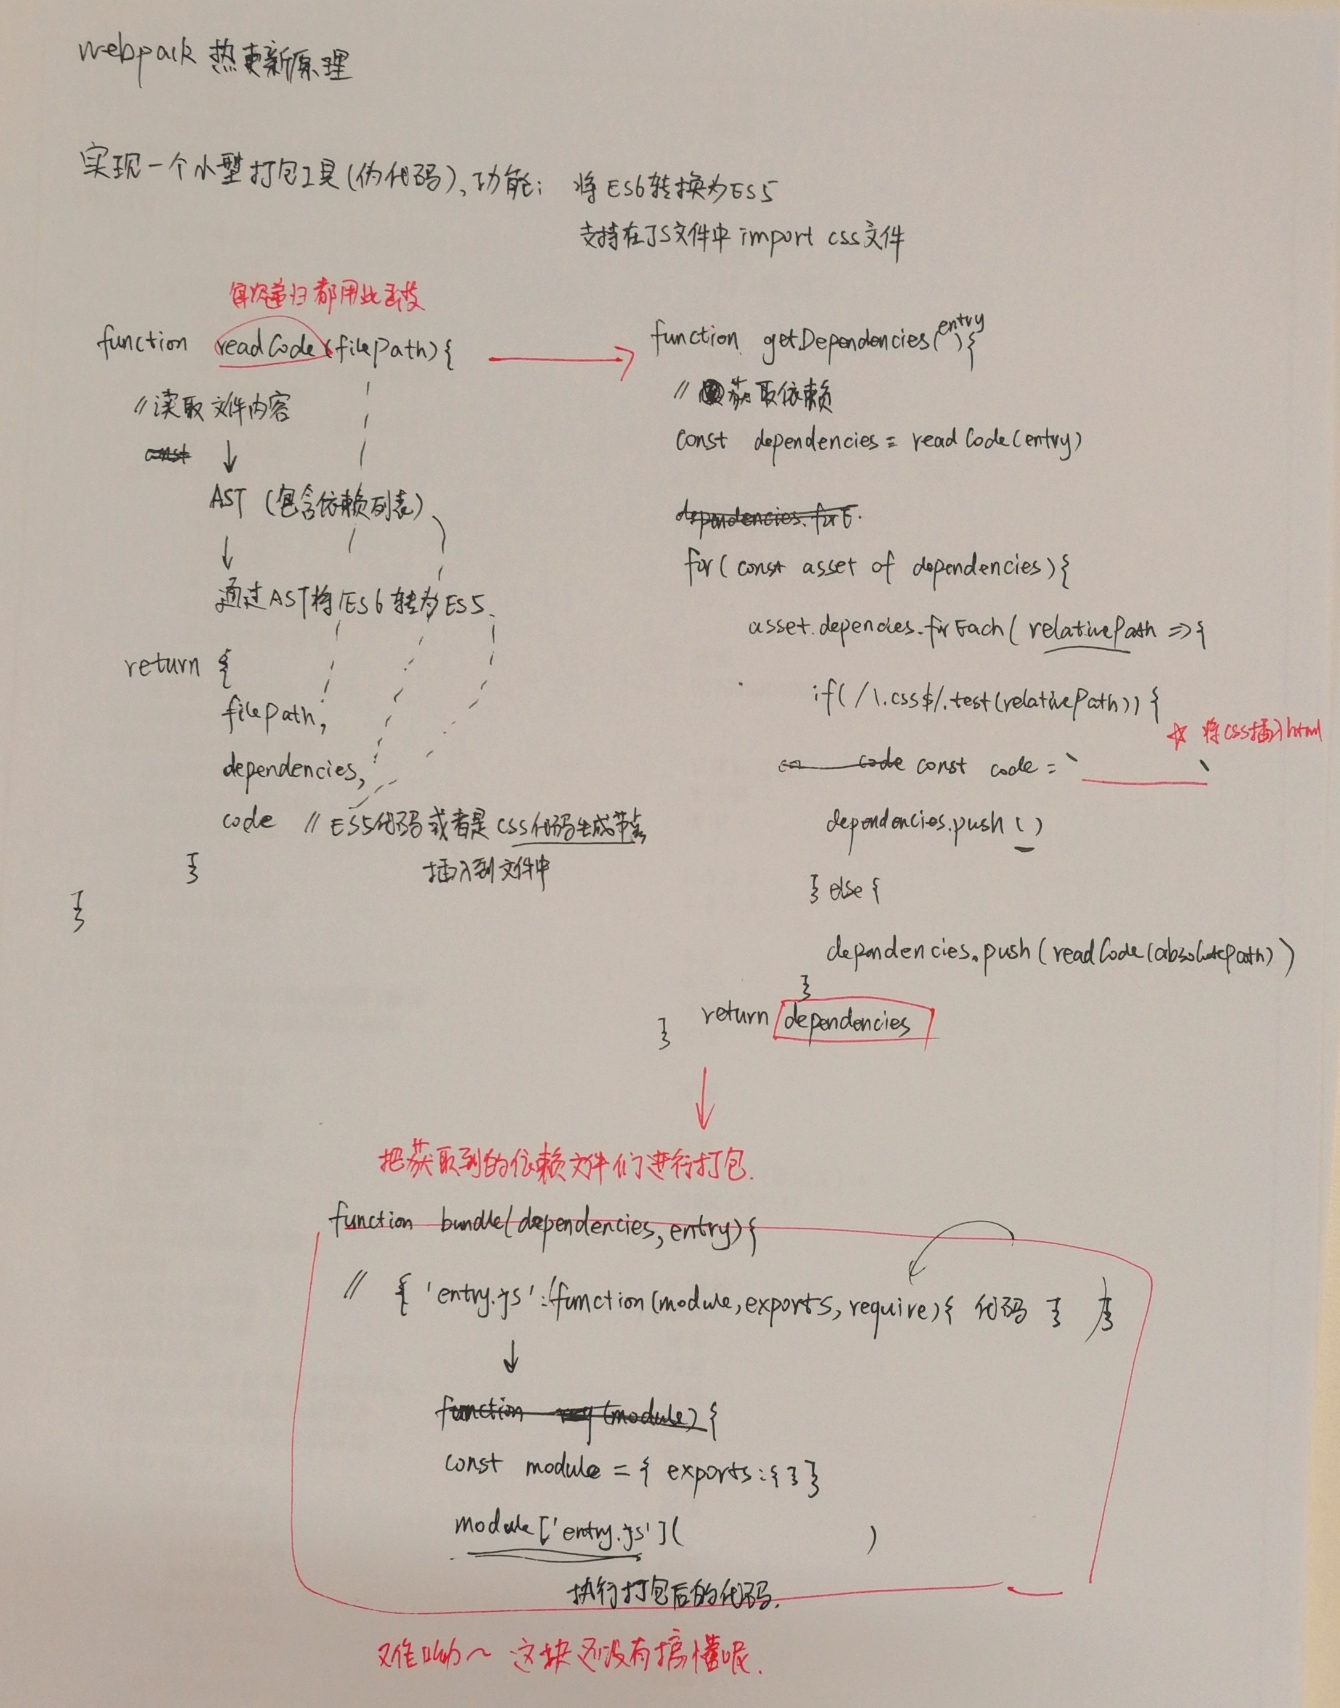 webpack 热更新原理
实现一个小型打包工具(伪代码)、功能: 将ES6转换为ES5
支持在JS文件中 import css文件
每次递归都用此函数
function readCode(filePath){
//读取文件内容
const
↓
AST (包含依赖列表)
↓
通过AST将ES6转为ES5
return {
filePath,
dependencies,
code // ES5代码或者是css代码生成节点
插入到文件中
}
}
function getDependencies(entry){
// 获取依赖
const dependencies = readCode(entry)
dependencies.forE.
for( const asset of dependencies){
asset.depencies.forEach( relativePath => {
if( /\.css$/.test(relativePath)) {
☆ 将css插入html
code const code = ` `
dependencies.push ( )
} else {
dependencies.push(readCode(absolutepath))
}
return dependencies
}
↓
把获取到的依赖文件们进行打包.
function bundle(dependencies, entry){
// { 'entry.js':function(module,exports,require){ 代码 } }
↓
function (module) {
const module = { exports:{ } }
module['entry.js']( )
执行打包后的代码.
难呦~ 这块还没有搞懂呢.